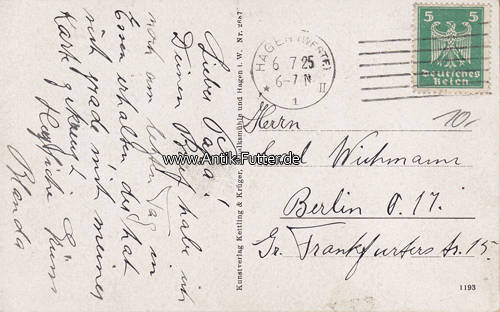 Lieber Papa!
Deinen Brief habe ich
noch am letzten Tag in
Essen erhalten, der hat
sich grade mit meiner
Karte gekreuzt.
Herzliche Grüsse
Wanda
Kunstverlag Kettling & Krüger, Schalksmühle und Hagen i. W. Nr. 2687
HAGEN (WESTF.)
6 7 25
6-7 N
* II
1
5 5
Deutsches
Reich
10,-
Herrn
Wichmann
Berlin O. 17.
Gr. Frankfurterstr. 15
1193
www.Antik-Futter.de